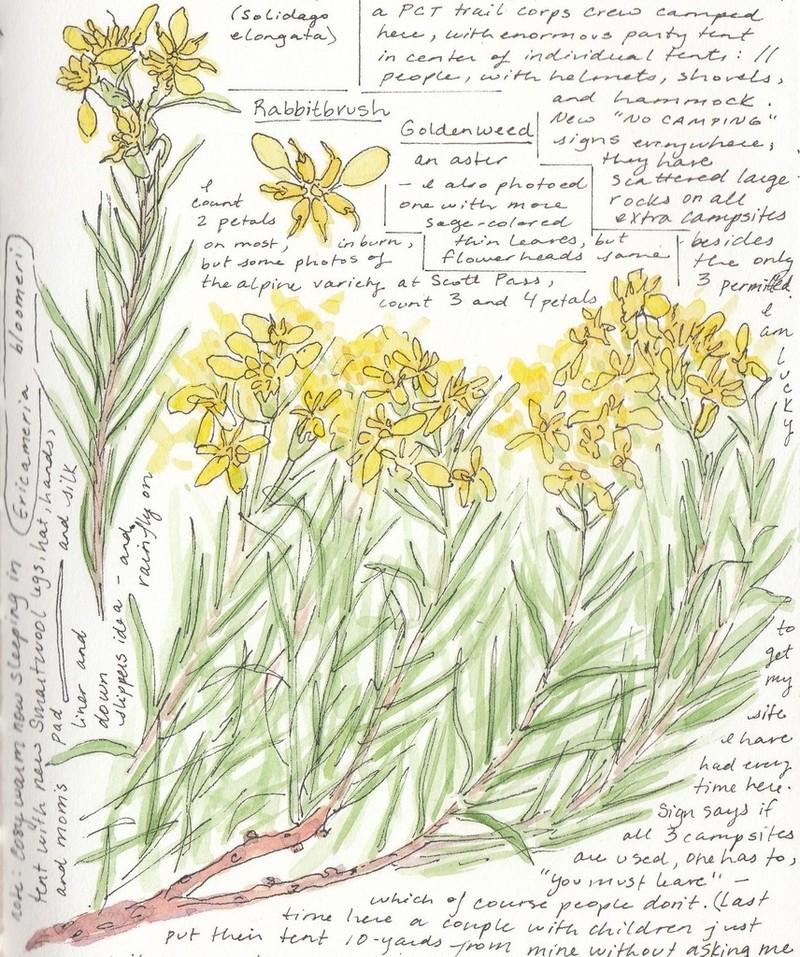 (Solidago
elongata)
a PCT trail corps crew camped
here, with enormous party tent
in center of individual tents: 11
people, with helmets, shovels,
and hammock.
New "NO CAMPING"
signs everywhere,
they have
scattered large
rocks on all
extra campsites
besides
the only
3 permitted.
I
am
l
u
c
k
y
to
get
my
site
I have
had every
time here.
Sign says if
all 3 campsites
are used, one has to,
"you must leave" –
which of course people don't. (Last
time here a couple with children just
put their tent 10-yards from mine without asking me
Rabbitbrush
Goldenweed
an aster
– I also photoed
one with more
sage-colored
thin leaves, but
flowerheads same
I
count
2 petals
on most, in burn,
but some photos of
the alpine variety at Scott Pass,
count 3 and 4 petals
Ericameria bloomeri
note: cosy warm now sleeping in
tent with new Smartwool leggs, hat, hands,
and mom's pad and silk
liner and
down
slippers idea – and
rainfly on